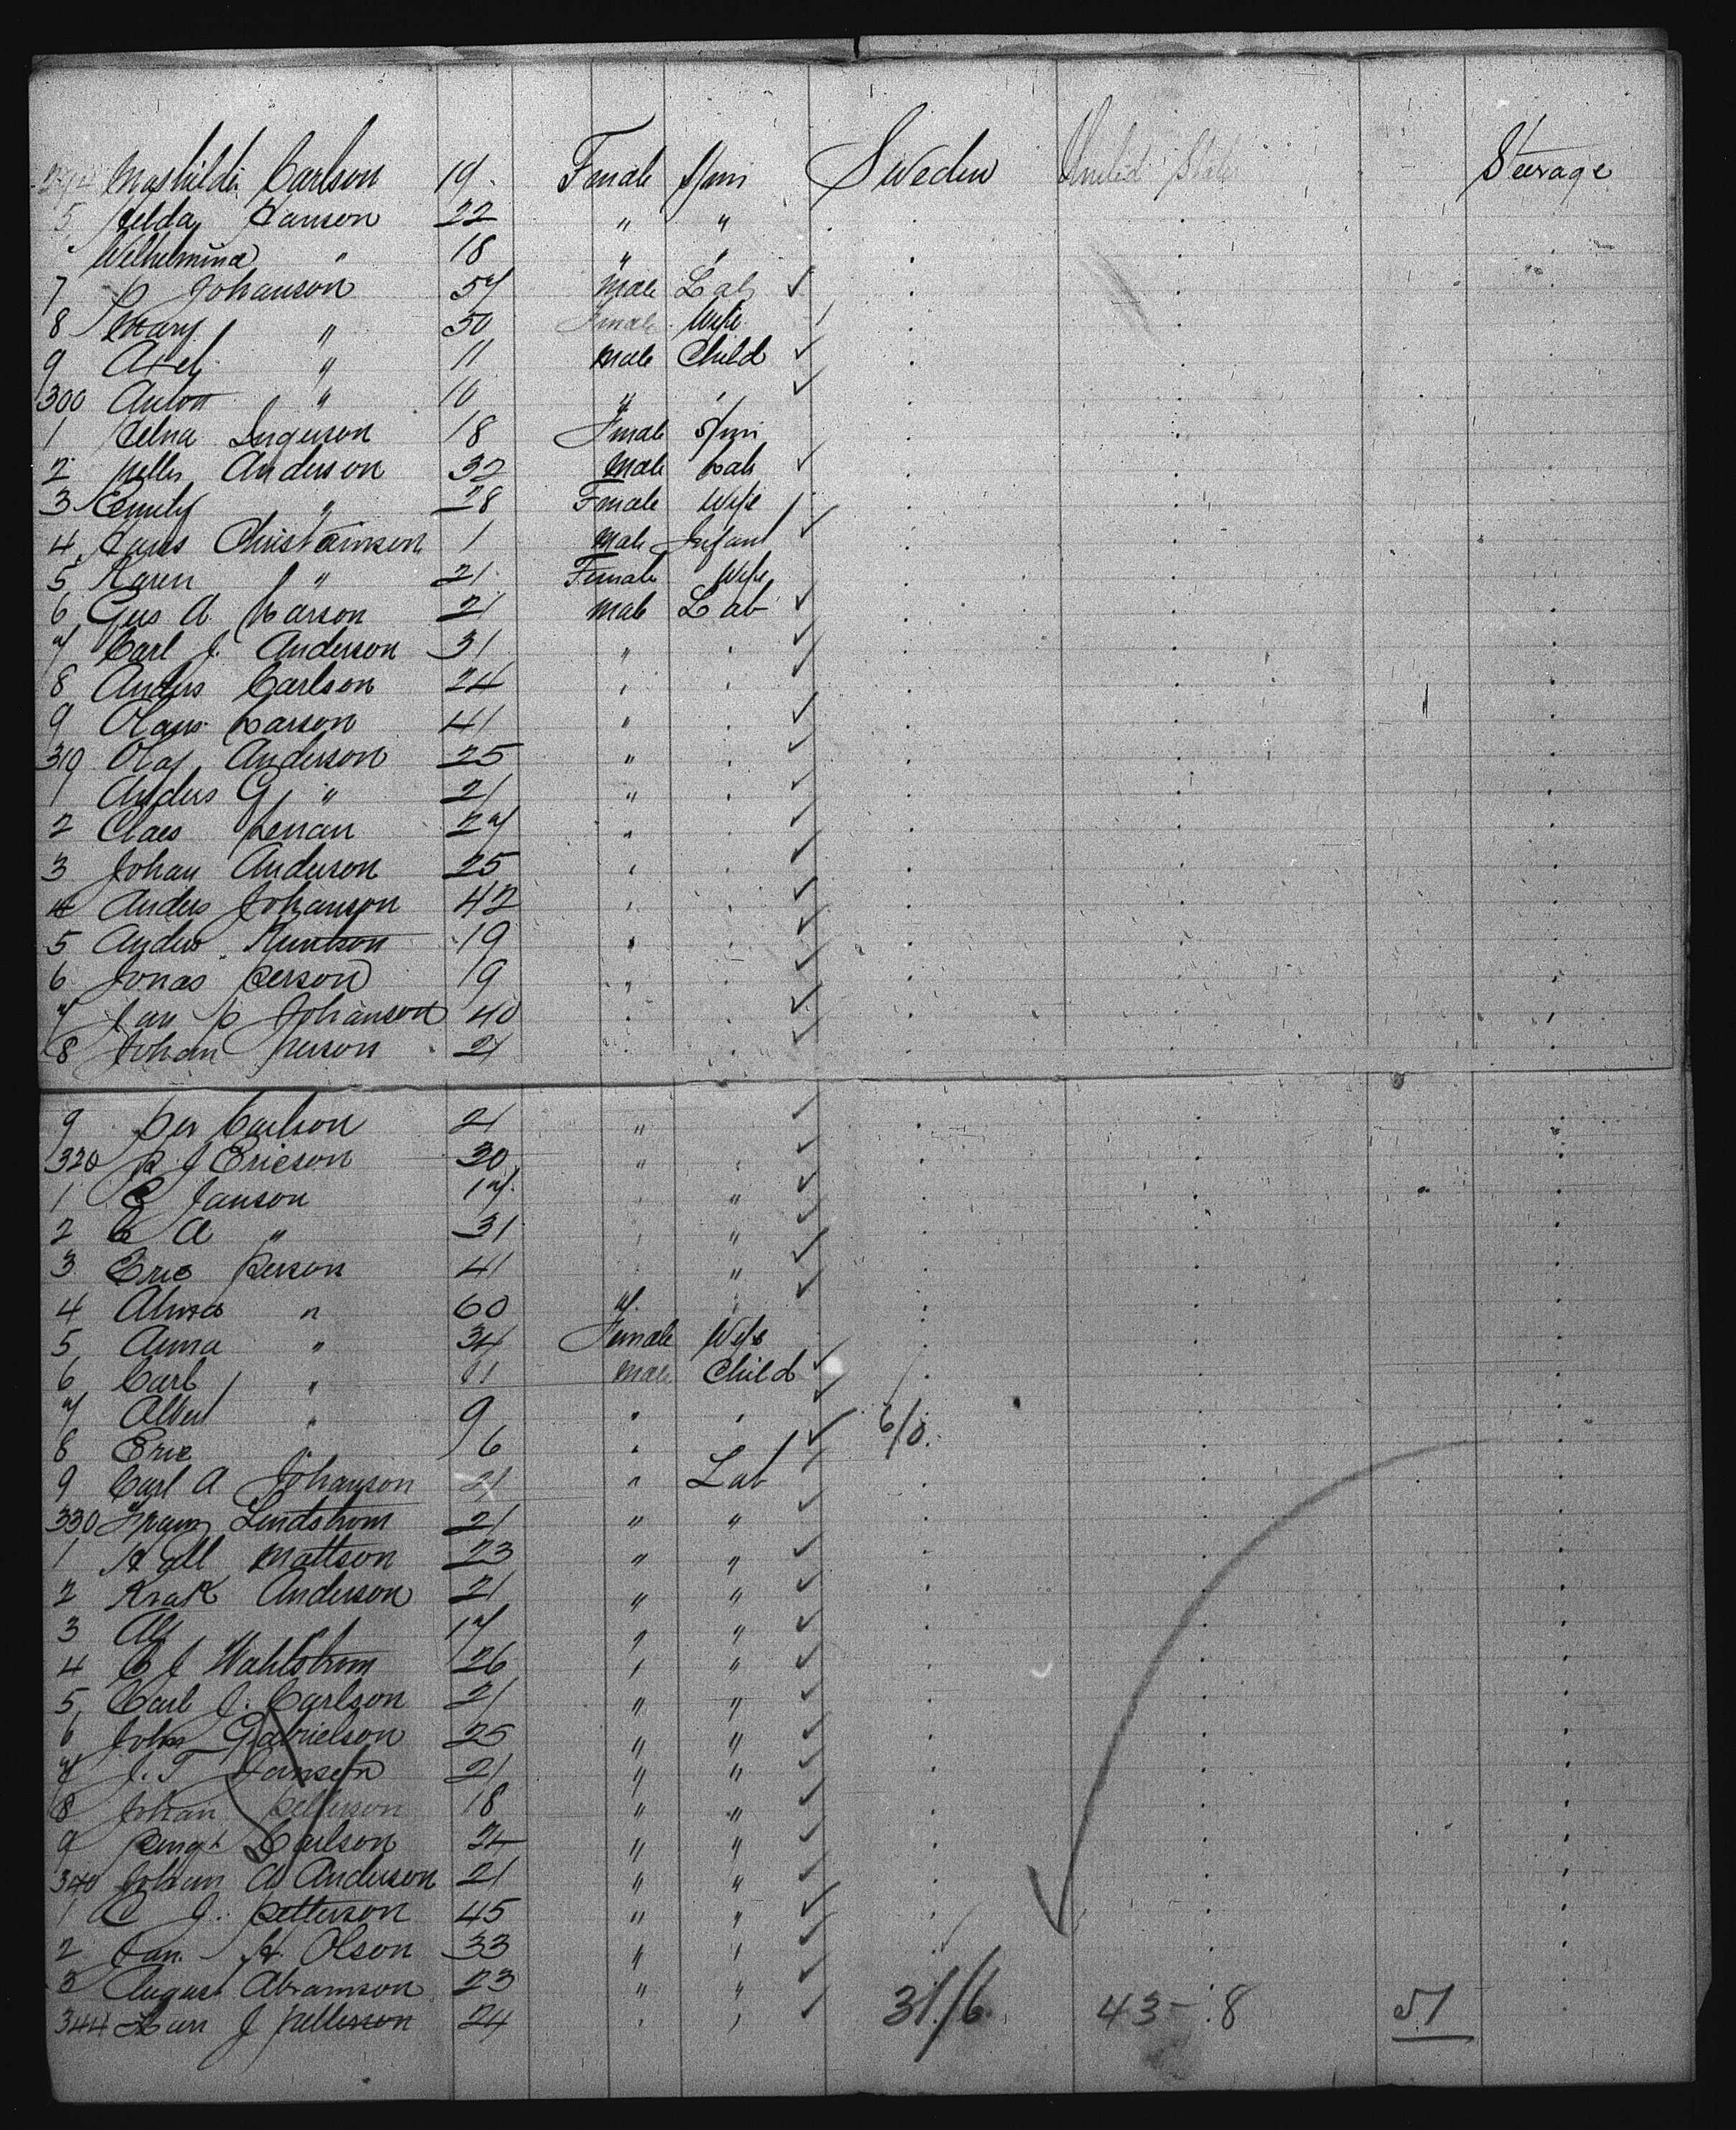 294 Mashilda Carlson 19 Female Spin Sweden United States Steerage
5 Hilda Hanson 22 " "
Wilhelmina " 18 " "
7 P Johanson 57 Male Lab
8 Mary " 50 Female Wife
9 Axel " 11 Male Child
300 Anton " 10 " "
1 Selma 18 Female Spin
2 Anderson 32 Male Lab
3 Emily " 28 Female Wife
4 Hans Christainsen 1 Male Infant
5 Karen " 21 Female Wife
6 Gus A Larson 21 Male Lab
7 Carl J. Anderson 31 " "
8 Anders Carlson 24 " "
9 Olaus Larson 41 " "
310 Olaf Anderson 25 " "
1 Anders G " 21 " "
2 Claes 27 " "
3 Johan Anderson 25 " "
4 Anders Johanson 42 " "
5 Anders Knutson 19 " "
6 Jonas Person 19 " "
7 Jan P Johanson 40 " "
8 Johan Person 21 " "
9 Per Carlson 21 " "
320 P J Ericson 30 " "
1 E Janson 17 " "
2 C A " 31 " "
3 Eric Person 41 " "
4 " 60 " "
5 Anna " 34 Female Wife
6 Carl " 11 Male Child
7 Albert " 9 " "
8 Eric 6 " 6/0.
9 Carl A Johanson 21 " Lab
330 Franz Lindstrom 21 " "
1 Mattson 23 " "
2 Anderson 21 " "
3 Alf " 17 " "
4 C J Wahlstrom 26 " "
5 Carl J. Carlson 21 " "
6 John Gabrielson 25 " "
7 J. T Hansen 21 " "
8 Johan Petterson 18 " "
9 Bengt Carlson 24 " "
340 Johan A Anderson 21 " "
1 C J. Petterson 45 " "
2 Jan. H. Olson 33 " "
3 August Abramson 23 " "
344 Lars J Petterson 24 " " 31/6. 43-8 51